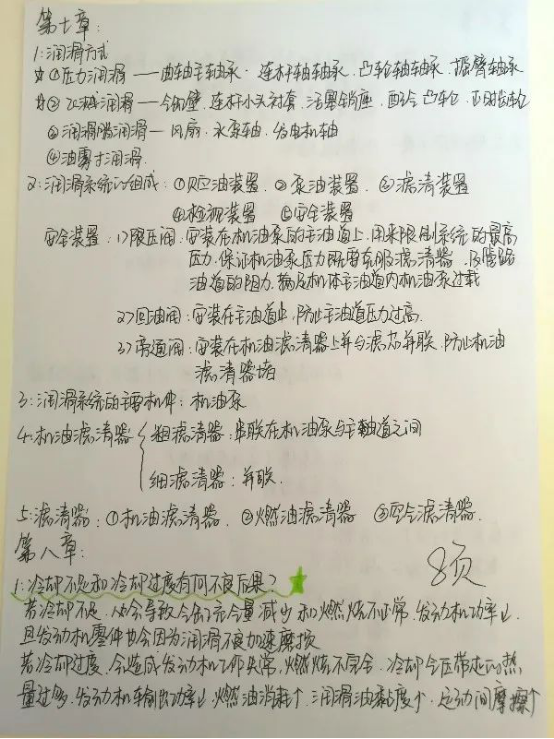 第七章:
1:润滑方式
☆①压力润滑——曲轴主轴承·连杆轴轴承.凸轮轴轴承.摇臂轴承
☆②飞溅润滑——气缸壁.连杆小头衬套.活塞销座.配气凸轮.正时齿轮
③润滑脂润滑—风扇.水泵轴.发电机轴
④油雾润滑.
2:润滑系统的组成:①贮油装置.②泵油装置.③滤清装置
④检视装置 ⑤安全装置
安全装置:1)限压阀:安装在机油泵的主油道上.用来限制系统的最高
压力.保证机油泵压力既要克服滤清器.及管路
油道的阻力.机体主油道内机油泵过载
2)回油阀:安装在主油道中,防止主油道压力过高.
3)旁通阀:安装在机油滤清器上并与滤芯并联.防止机油
滤清器堵
3:润滑系统的主要机件:机油泵
4:机油滤清器{粗滤清器:串联在机油泵与主油道之间
细滤清器:并联.
5:滤清器:①机油滤清器.②燃油滤清器 ③空气滤清器.
第八章:
8页
1:冷却不足和冷却过度有何不良后果?
若冷却不足.会导致气缸充气量减少和燃烧不正常.发动机功率↓.
且发动机零件也会因为润滑不良加速磨损
若冷却过度.会造成发动机工作失常.燃烧不完全.冷却带走的热
量过多.发动机输出功率↓.燃油消耗↑.润滑油黏度↑.运动间摩擦↑